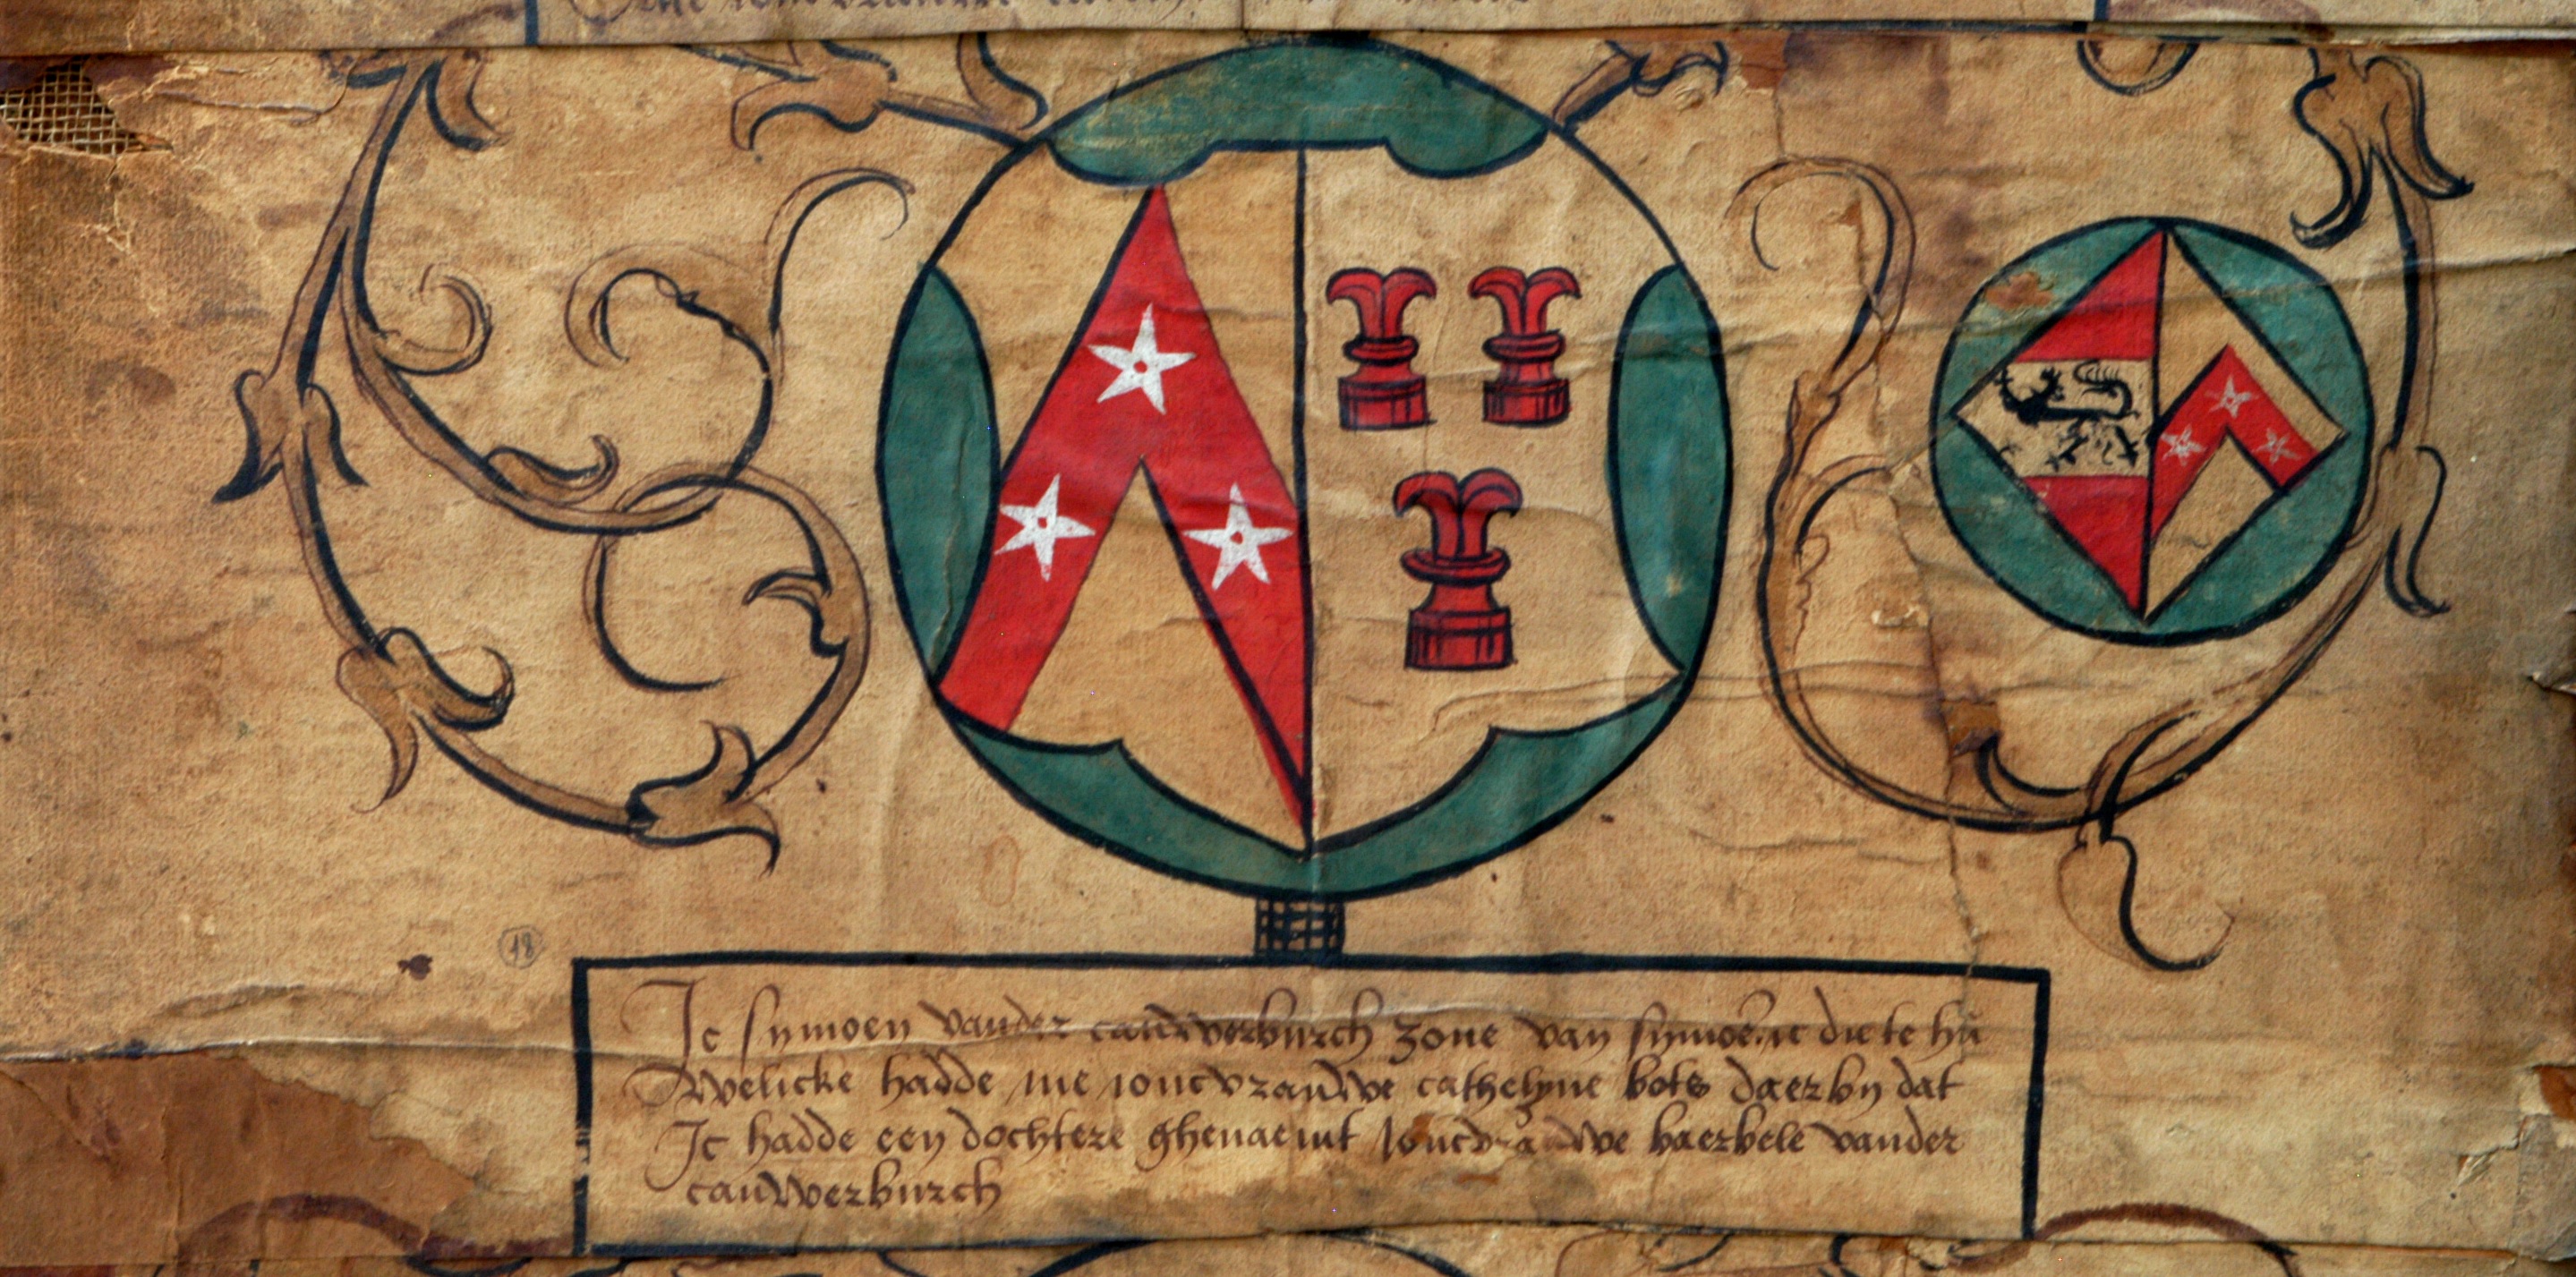 18
Ic symoen vander cauwerburch zone van symoen ic die te hu
welicke hadde me joncvrauwe cathelyne bots daer by dat
Ic hadde een dochtere ghenaemt joncvrauwe baerbele vander
cauwerburch